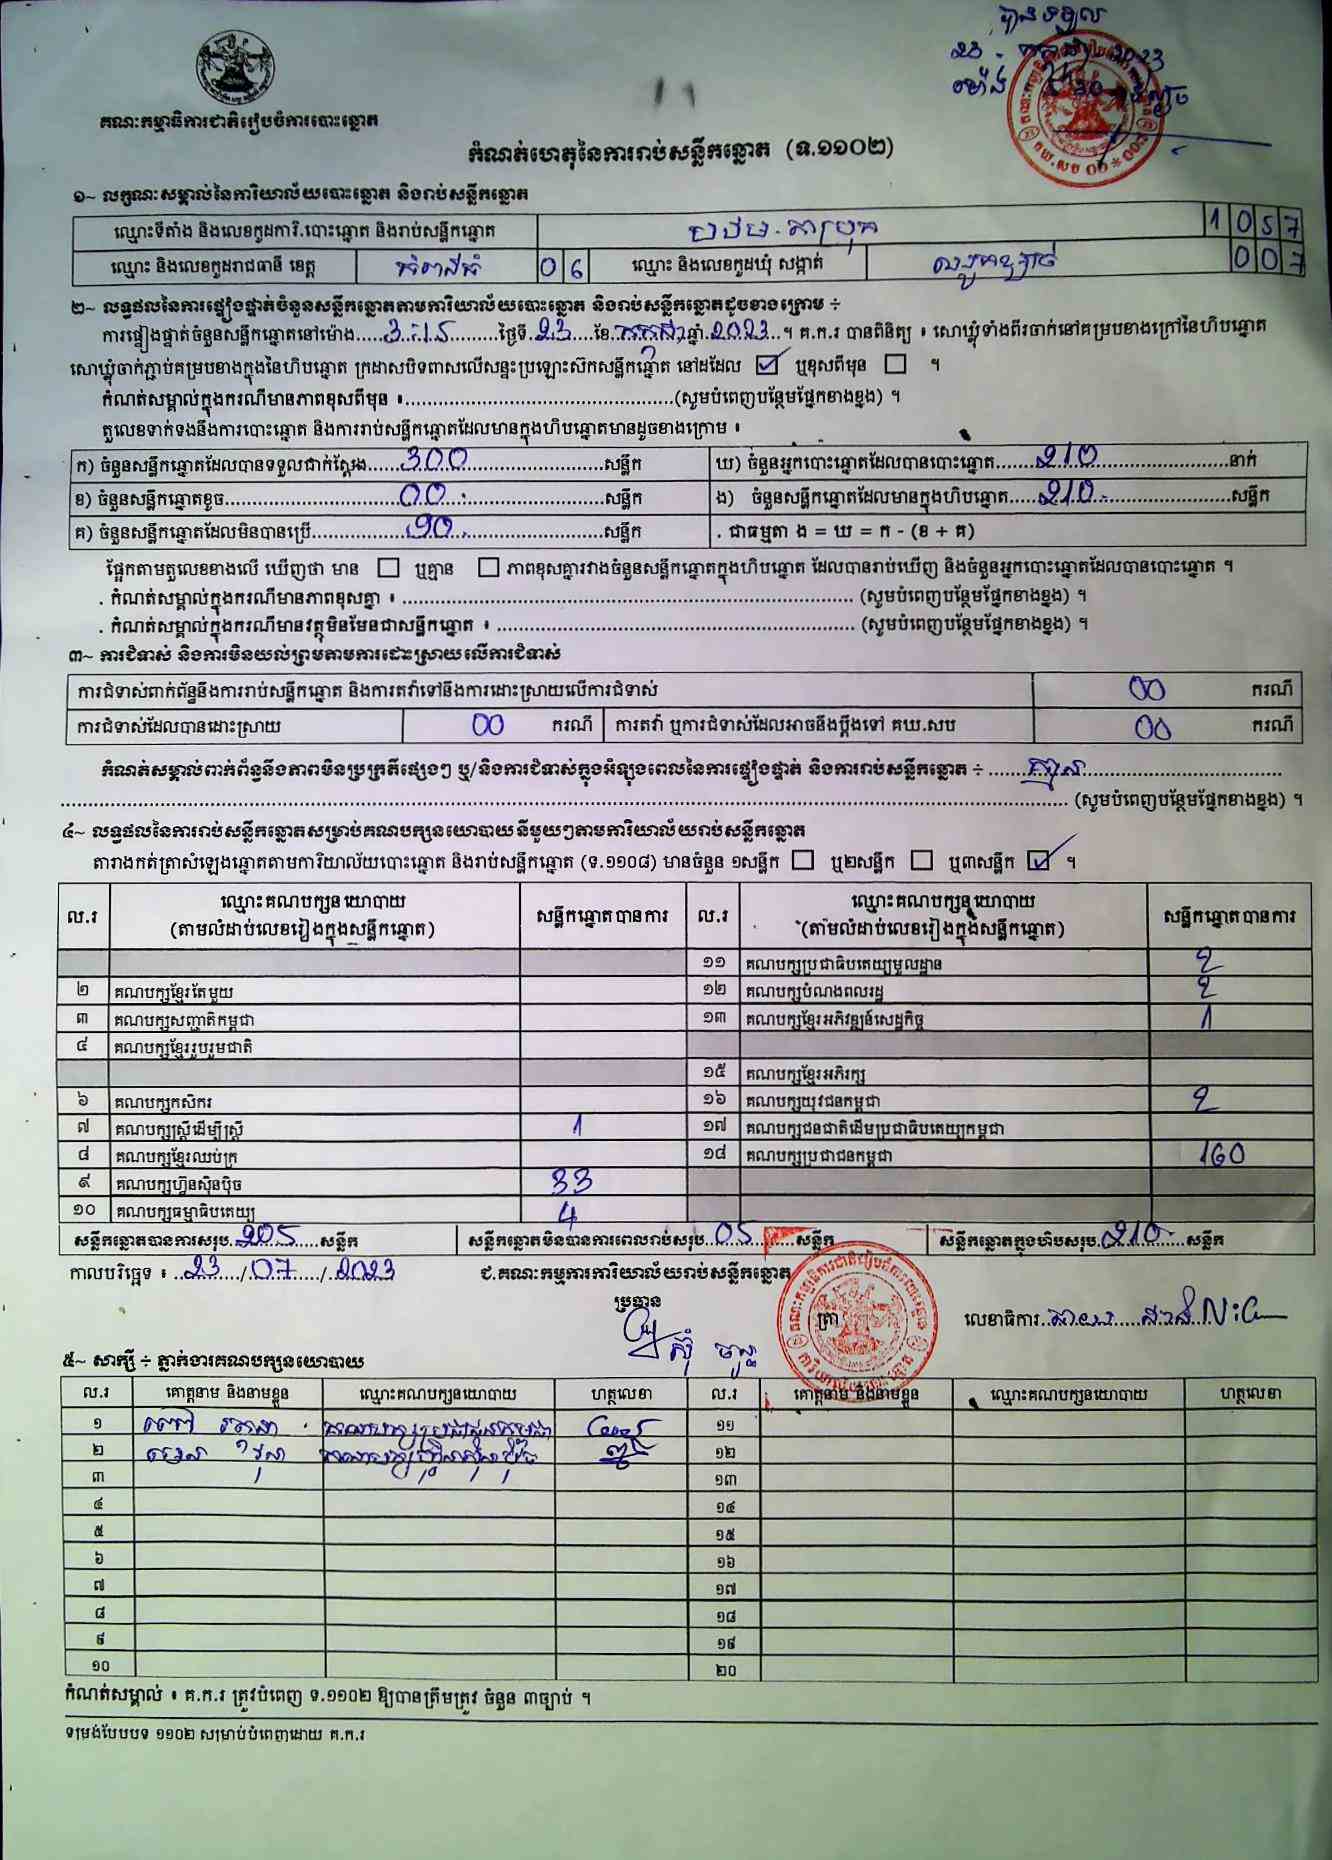 បានទទួល
23
2023
ម៉ោង
គណៈកម្មាធិការជាតិរៀបចំការបោះឆ្នោត
កំណត់ហេតុនៃការរាប់សន្លឹកឆ្នោត (ទ.១១០២)
១~ លក្ខណៈសម្គាល់នៃការិយាល័យបោះឆ្នោត និងរាប់សន្លឹកឆ្នោត
ឈ្មោះទីតាំង និងលេខកូដការិ.បោះឆ្នោត និងរាប់សន្លឹកឆ្នោត 1057
ឈ្មោះ និងលេខកូដរាជធានី ខេត្ត កំពង់ធំ 06 ឈ្មោះ និងលេខកូដឃុំ សង្កាត់ 007
២~ លទ្ធផលនៃការផ្ទៀងផ្ទាត់ចំនួនសន្លឹកឆ្នោតតាមការិយាល័យបោះឆ្នោត និងរាប់សន្លឹកឆ្នោតដូចខាងក្រោម ÷
ការផ្ទៀងផ្ទាត់ចំនួនសន្លឹកឆ្នោតនៅម៉ោង 3:15 ថ្ងៃទី 23 ខែ កក្កដា ឆ្នាំ 2023 ។ គ.ក.រ បានពិនិត្យ ៖ សោឃ្លុំទាំងពីរចាក់នៅគម្របខាងក្រៅនៃហិបឆ្នោត
សោឃ្លុំចាក់ភ្ជាប់គម្របខាងក្នុងនៃហិបឆ្នោត ក្រដាសបិទពាសលើសន្ទះប្រឡោះស៊កសន្លឹកឆ្នោត នៅដដែល ☑ ឬខុសពីមុន ☐ ។
កំណត់សម្គាល់ក្នុងករណីមានភាពខុសពីមុន ៖ (សូមបំពេញបន្ថែមផ្នែកខាងខ្នង) ។
តួលេខទាក់ទងនឹងការបោះឆ្នោត និងការរាប់សន្លឹកឆ្នោតដែលមានក្នុងហិបឆ្នោតមានដូចខាងក្រោម ៖
ក) ចំនួនសន្លឹកឆ្នោតដែលបានទទួលជាក់ស្តែង 300 សន្លឹក ឃ) ចំនួនអ្នកបោះឆ្នោតដែលបានបោះឆ្នោត 210 នាក់
ខ) ចំនួនសន្លឹកឆ្នោតខូច 00 សន្លឹក ង) ចំនួនសន្លឹកឆ្នោតដែលមានក្នុងហិបឆ្នោត 210 សន្លឹក
គ) ចំនួនសន្លឹកឆ្នោតដែលមិនបានប្រើ 90 សន្លឹក . ជាធម្មតា ង = ឃ = ក - (ខ + គ)
ផ្អែកតាមតួលេខខាងលើ ឃើញថា មាន ☐ ឬគ្មាន ☐ ភាពខុសគ្នារវាងចំនួនសន្លឹកឆ្នោតក្នុងហិបឆ្នោត ដែលបានរាប់ឃើញ និងចំនួនអ្នកបោះឆ្នោតដែលបានបោះឆ្នោត ។
. កំណត់សម្គាល់ក្នុងករណីមានភាពខុសគ្នា ៖ (សូមបំពេញបន្ថែមផ្នែកខាងខ្នង) ។
. កំណត់សម្គាល់ក្នុងករណីមានវត្ថុមិនមែនជាសន្លឹកឆ្នោត ៖ (សូមបំពេញបន្ថែមផ្នែកខាងខ្នង) ។
៣~ ការជំទាស់ និងការមិនយល់ព្រមតាមការដោះស្រាយលើការជំទាស់
ការជំទាស់ពាក់ព័ន្ធនឹងការរាប់សន្លឹកឆ្នោត និងការតវ៉ាទៅនឹងការដោះស្រាយលើការជំទាស់ 00 ករណី
ការជំទាស់ដែលបានដោះស្រាយ 00 ករណី ការតវ៉ា ឬការជំទាស់ដែលអាចនឹងប្តឹងទៅ គឃ.សប 00 ករណី
កំណត់សម្គាល់ពាក់ព័ន្ធនឹងភាពមិនប្រក្រតីផ្សេងៗ ឬ/និងការជំទាស់ក្នុងអំឡុងពេលនៃការផ្ទៀងផ្ទាត់ និងការរាប់សន្លឹកឆ្នោត ÷ គ្មាន
(សូមបំពេញបន្ថែមផ្នែកខាងខ្នង) ។
៤~ លទ្ធផលនៃការរាប់សន្លឹកឆ្នោតសម្រាប់គណបក្សនយោបាយនីមួយៗតាមការិយាល័យរាប់សន្លឹកឆ្នោត
តារាងកត់ត្រាសំឡេងឆ្នោតតាមការិយាល័យបោះឆ្នោត និងរាប់សន្លឹកឆ្នោត (ទ.១១០៨) មានចំនួន ១សន្លឹក ☐ ឬ២សន្លឹក ☐ ឬ៣សន្លឹក ☑ ។
ល.រ ឈ្មោះគណបក្សនយោបាយ (តាមលំដាប់លេខរៀងក្នុងសន្លឹកឆ្នោត) សន្លឹកឆ្នោតបានការ ល.រ ឈ្មោះគណបក្សនយោបាយ (តាមលំដាប់លេខរៀងក្នុងសន្លឹកឆ្នោត) សន្លឹកឆ្នោតបានការ
១១ គណបក្សប្រជាធិបតេយ្យមូលដ្ឋាន 2
២ គណបក្សខ្មែរតែមួយ ១២ គណបក្សបំណងពលរដ្ឋ 2
៣ គណបក្សសញ្ជាតិកម្ពុជា ១៣ គណបក្សខ្មែរអភិវឌ្ឍន៍សេដ្ឋកិច្ច 1
៤ គណបក្សខ្មែររួបរួមជាតិ
១៥ គណបក្សខ្មែរអភិរក្ស
៦ គណបក្សកសិករ ១៦ គណបក្សយុវជនកម្ពុជា 2
៧ គណបក្សស្ត្រីដើម្បីស្ត្រី 1 ១៧ គណបក្សជនជាតិដើមប្រជាធិបតេយ្យកម្ពុជា
៨ គណបក្សខ្មែរឈប់ក្រ ១៨ គណបក្សប្រជាជនកម្ពុជា 160
៩ គណបក្សហ្វ៊ុនស៊ិនប៉ិច 33
១០ គណបក្សធម្មាធិបតេយ្យ 4
សន្លឹកឆ្នោតបានការសរុប 205 សន្លឹក សន្លឹកឆ្នោតមិនបានការពេលរាប់សរុប 05 សន្លឹក សន្លឹកឆ្នោតក្នុងហិបសរុប 210 សន្លឹក
កាលបរិច្ឆេទ ៖ 23/07/2023 ជ.គណៈកម្មការការិយាល័យរាប់សន្លឹកឆ្នោត
ប្រធាន ត្រា លេខាធិការ
ស៊ុំ
៥~ សាក្សី ÷ ភ្នាក់ងារគណបក្សនយោបាយ
ល.រ គោត្តនាម និងនាមខ្លួន ឈ្មោះគណបក្សនយោបាយ ហត្ថលេខា ល.រ គោត្តនាម និងនាមខ្លួន ឈ្មោះគណបក្សនយោបាយ ហត្ថលេខា
១ គណបក្សប្រជាជនកម្ពុជា ១១
២ គណបក្សហ្វ៊ុនស៊ិនប៉ិច ១២
៣ ១៣
៤ ១៤
៥ ១៥
៦ ១៦
៧ ១៧
៨ ១៨
៩ ១៩
១០ ២០
កំណត់សម្គាល់ ៖ គ.ក.រ ត្រូវបំពេញ ទ.១១០២ ឱ្យបានត្រឹមត្រូវ ចំនួន ៣ច្បាប់ ។
ទម្រង់បែបបទ ១១០២ សម្រាប់បំពេញដោយ គ.ក.រ